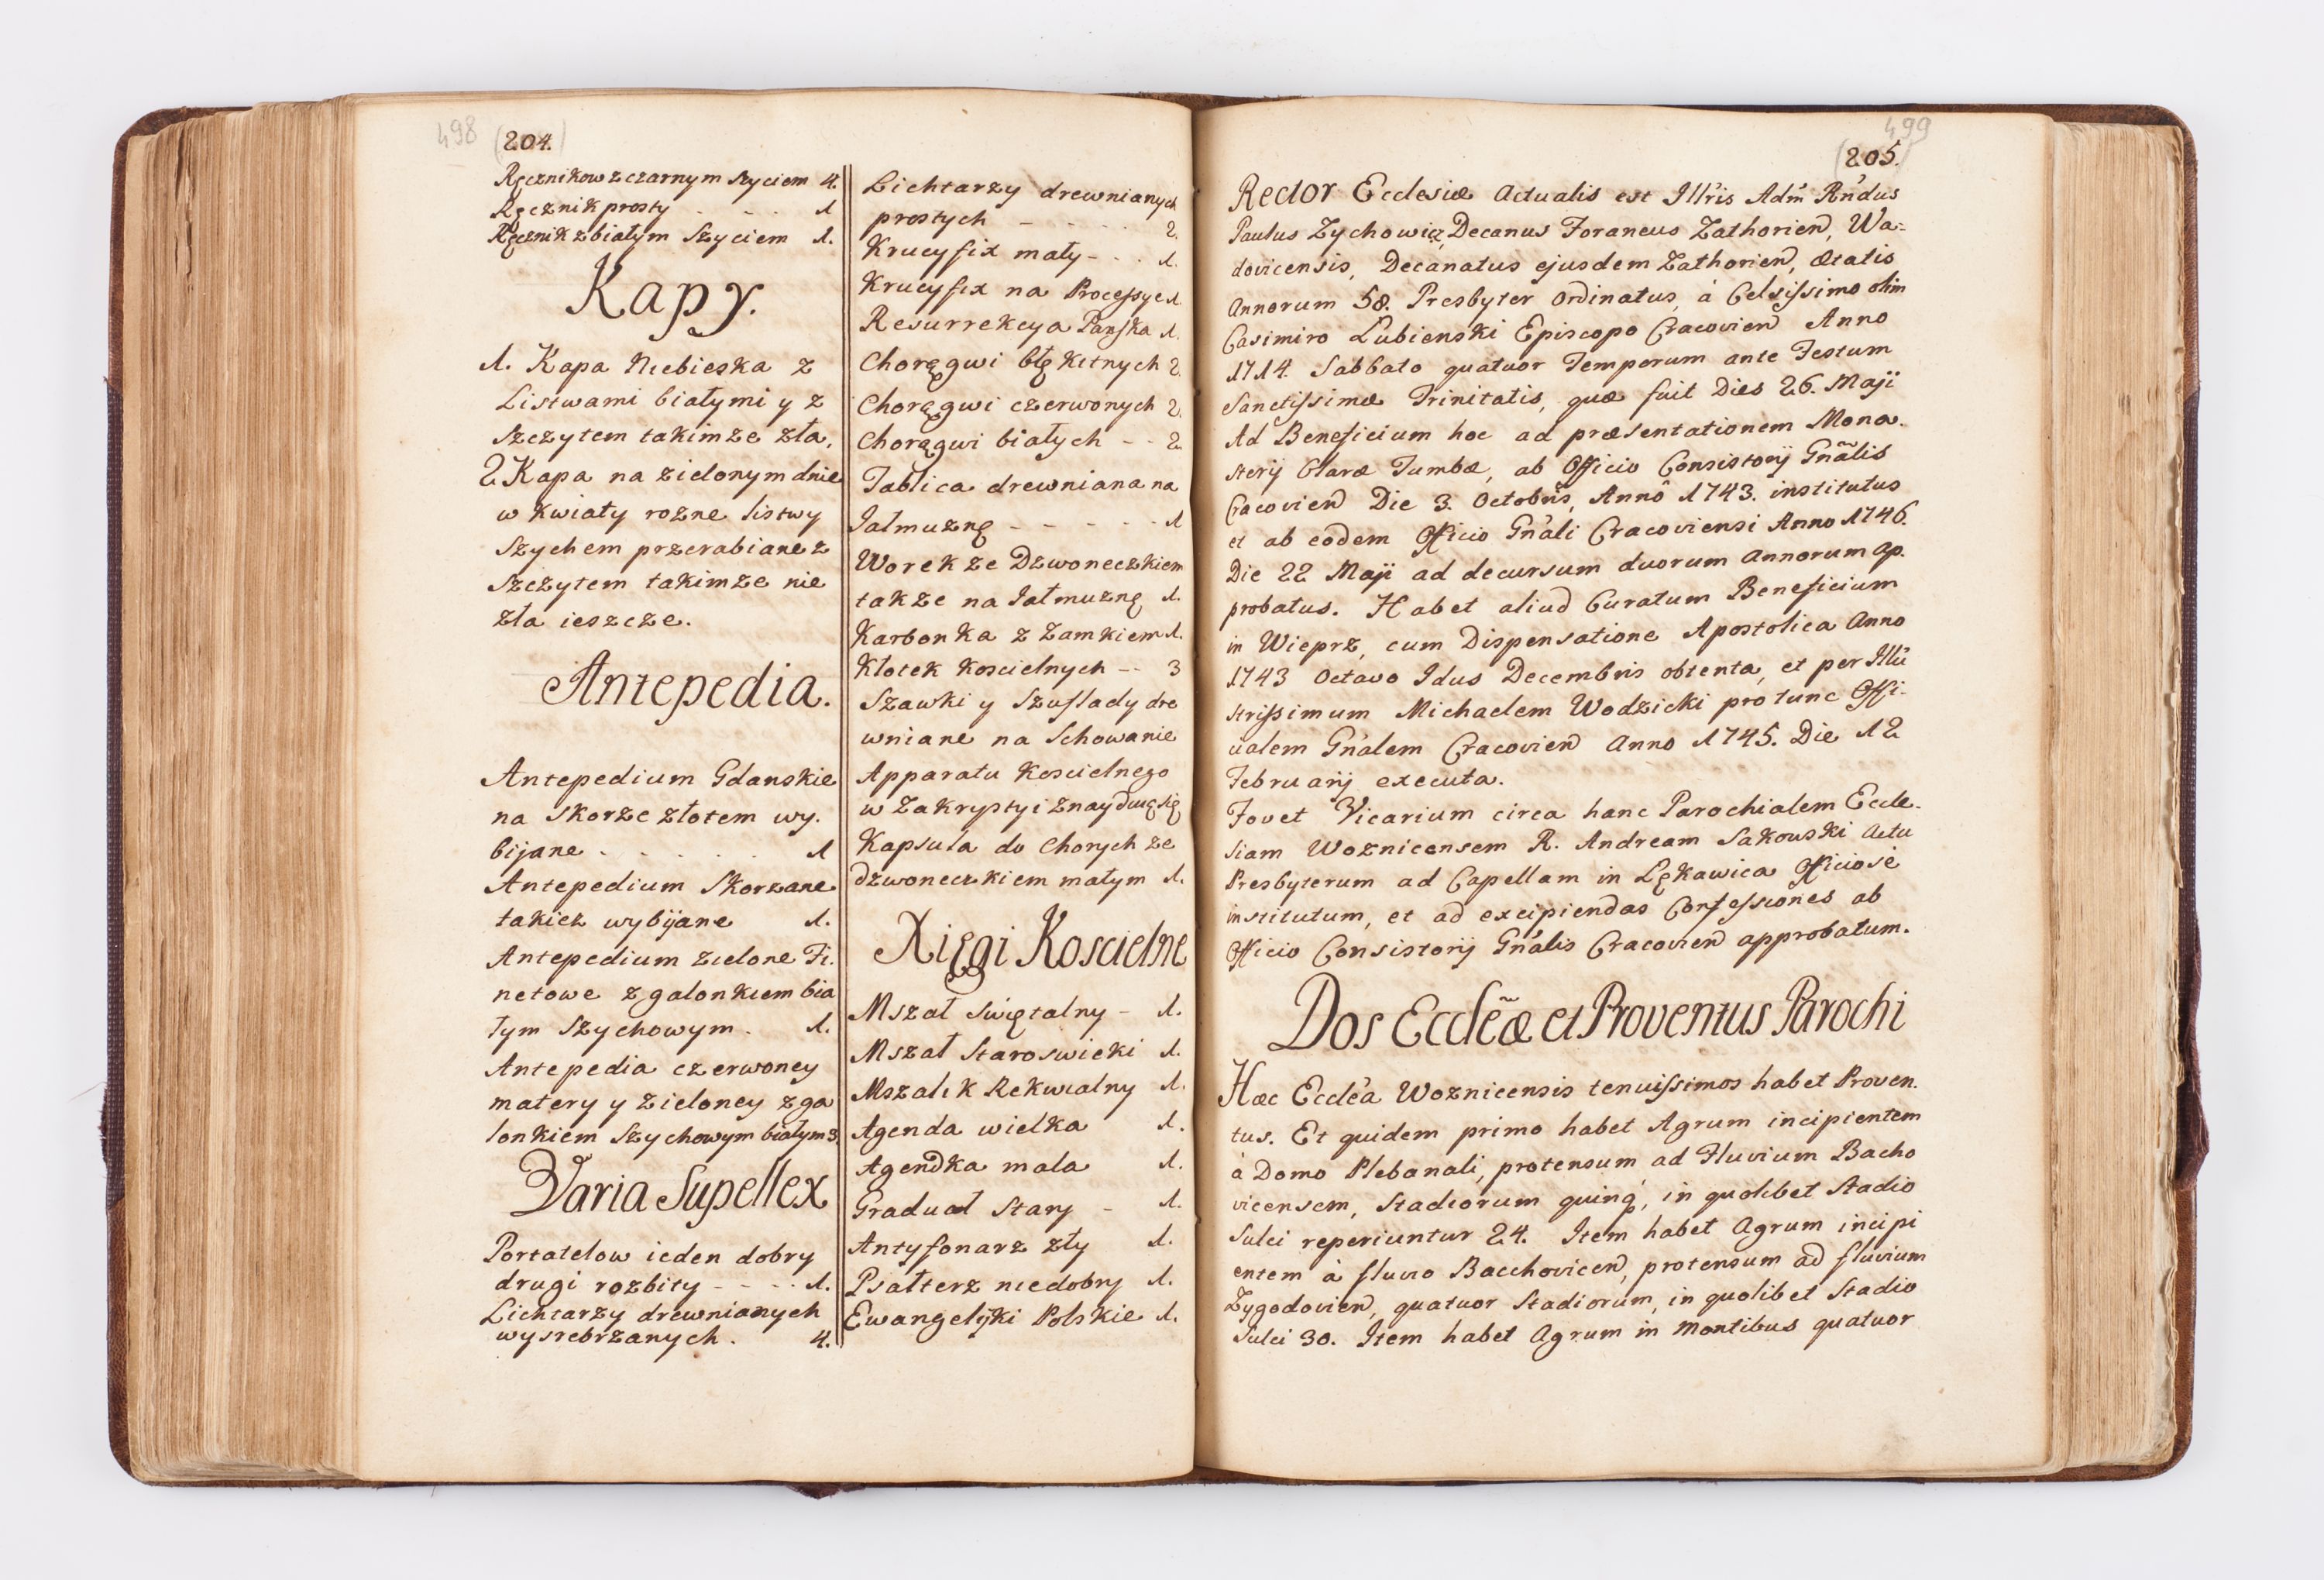 498 (204.)
Ręcznikow z czarnym szyciem 4.
Ręcznik prosty . . . . 1
Ręcznik z białym Szyciem 1.
Kapy.
1. Kapa Niebieska z
Listwami białymi y z
Szczytem takimze zła,
2 Kapa na zielonym dnie
w kwiaty rozne listwy
Szychem przerabiane z
Szczytem takimze nie
zła ieszcze.
Antepedia.
Antepedium Gdanskie
na skorze złotem wy.
bijane . . . . . . 1
Antepedium Skorzane
takiez wybijane 1.
Antepedium zielone Fi.
netowe z galonkiem bia
łym Szychowym. 1.
Antepedia czerwoney
matery y zieloney z ga
lonkiem Szychowym białym 3.
Varia Supellex
Portatelow ieden dobry
drugi rozbity - - - . 1.
Lichtarzy drewnianych
wysrebrzanych. 4.
Lichtarzy drewnianych
prostych - - . . . 2.
Krucyfix mały - . . 1.
Krucyfix na Processye 1.
Resurrekcya Pańska 1.
Chorągwi błękitnych 2.
Chorągwi czerwonych 2.
Chorągwi białych - - 2.
Tablica drewniana na
Jałmuznę - - - - - 1
Worek ze Dzwoneczkiem
takze na Jałmuznę 1.
Karbonka z Zamkiem 1.
Kłotek Koscielnych - - 3
Szawki y Szuflady dre
wniane na Schowanie
Apparatu Koscielnego
w Zakrystyi znayduię się
Kapsuła do Chorych ze
dzwoneczkiem małym 1.
Xięgi Koscielne
Mszał Swiętalny - 1.
Mszał Staroswiecki 1.
Mszalik Rekwialny 1.
Agenda wielka 1.
Agendka mała 1.
Graduał Stary - 1.
Antyfonarz zły 1.
Psałterz niedobry 1.
Ewangelijki Polskie 1.
499
(205.)
Rector Ecclesiæ Actualis est Illris Adm Rndus
Paulus Zychowicz, Decanus Foraneus Zathorien, Wa-
dovicensis, Decanatus ejusdem Zathorien, ætatis
Annorum 58. Presbyter Ordinatus, á Celsissimo olim
Casimiro Łubienski Episcopo Cracovien Anno
1714. Sabbato quatuor Temporum ante Festum
Sanctissimæ Trinitatis, quæ fuit Dies 26. Maji
Ad Beneficium hoc ad præsentationem Mona.
sterij Claræ Tumbæ, ab Officio Consistorij Gnãlis
Cracovien Die 3. Octobris, Annô 1743. institutus
et ab eodem Officio Gnáli Cracoviensi Anno 1746.
Die 22 Maji ad decursum duorum annorum ap.
probatus. Habet aliud Curatum Beneficium
in Wieprz, cum Dispensatione Apostolica Anno
1743 Octavo Idus Decembris obtenta, et per Illũ
strissimum Michaelem Wodzicki pro tunc Offi-
cialem Gnálem Cracovien Anno 1745. Die 12
Februarij executa.
Fovet Vicarium circa hanc Parochialem Eccle.
siam Woznicensem R. Andream Sakowski Actu
Presbyterum ad Capellam in Lękawica Officiosé
institutum, et ad excipiendas Confessiones ab
Officio Consistorij Gnális Cracovien approbatum.
Dos Ecclẽæ et Proventus Parochi
Hæc Eccléa Woznicensis tenuissimos habet Proven.
tus. Et quidem primo habet Agrum incipientem
á Domo Plebanali, protensum ad Fluvium Bacho
vicensem, Stadiorum quinq, in quolibet Stadio
Sulci reperiuntur 24. Item habet Agrum incipi
entem á fluvio Bacchovicen, protensum ad fluvium
Zygodovien, quatuor Stadiorum, in quolibet Stadio
Sulci 30. Item habet Agrum in Montibus quatuor